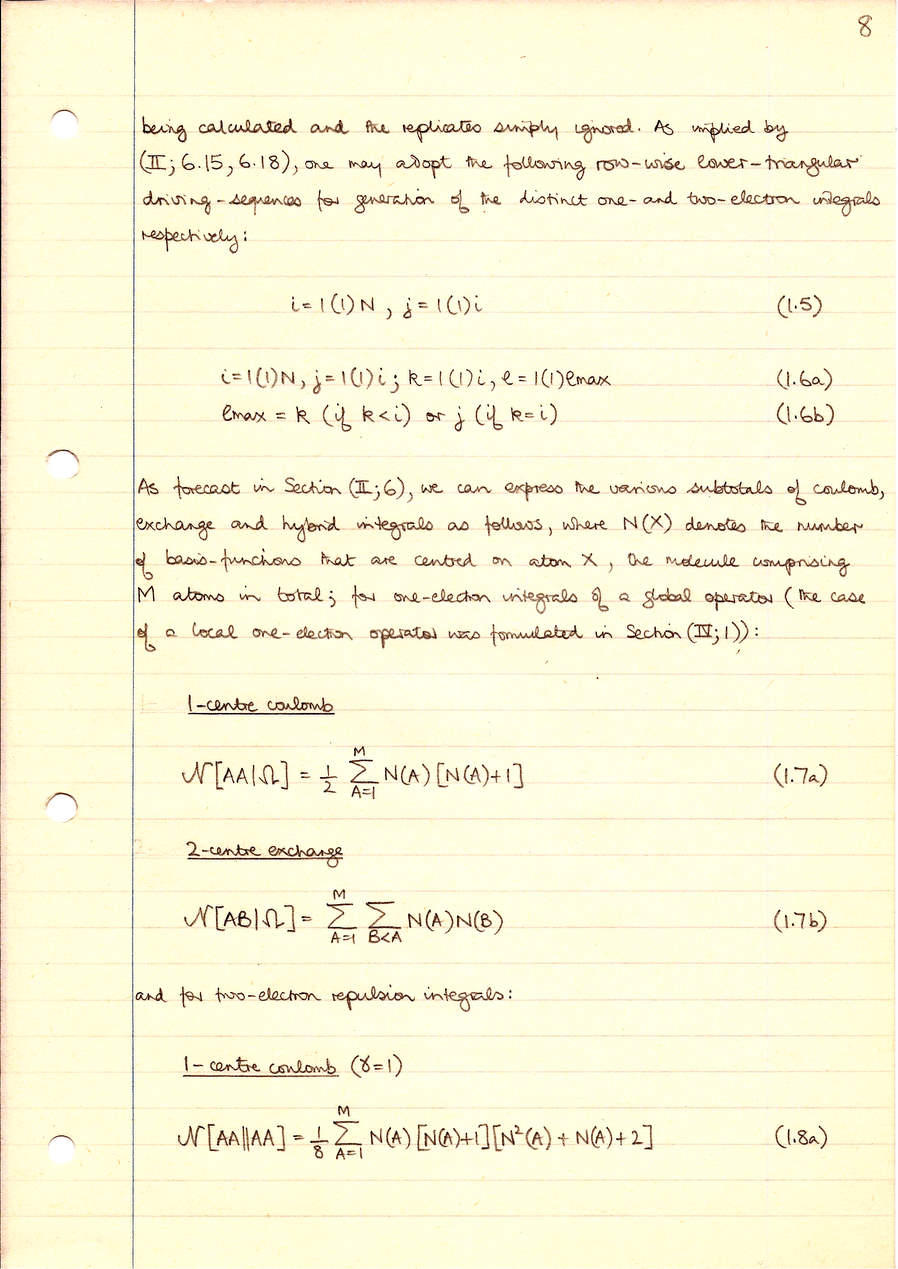 8
being calculated and the replicates simply ignored. As implied by
(II; 6.15, 6.18), one may adopt the following row-wise lower-triangular
driving-sequences for generation of the distinct one- and two-electron integrals
respectively:
i = 1(1)N , j = 1(1)i (1.5)
i=1(1)N, j=1(1)i; k=1(1)i, ℓ=1(1)ℓmax (1.6a)
ℓmax = k (if k<i) or j (if k=i) (1.6b)
As forecast in Section (II;6), we can express the various subtotals of coulomb,
exchange and hybrid integrals as follows, where N(X) denotes the number
of basis-functions that are centred on atom X, the molecule comprising
M atoms in total; for one-electron integrals of a global operator (the case
of a local one-electron operator was formulated in Section (IV;1)):
1-centre coulomb
𝒩[AA|Ω] = 1/2 Σ_{A=1}^{M} N(A)[N(A)+1] (1.7a)
2-centre exchange
𝒩[AB|Ω] = Σ_{A=1}^{M} Σ_{B<A} N(A)N(B) (1.7b)
and for two-electron repulsion integrals:
1-centre coulomb (γ=1)
𝒩[AA||AA] = 1/8 Σ_{A=1}^{M} N(A)[N(A)+1][N²(A) + N(A)+2] (1.8a)